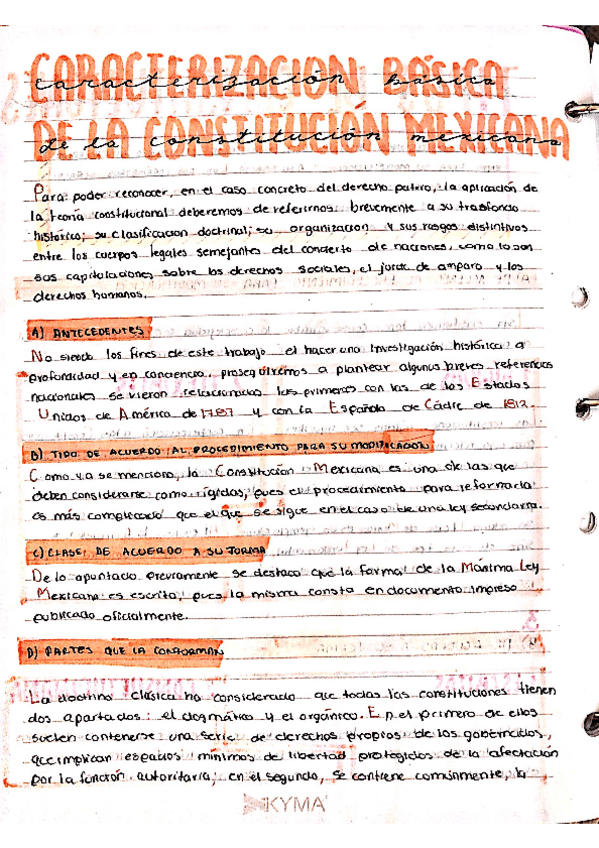 CARACTERIZACIÓN BÁSICA
caracterización básica
DE LA CONSTITUCIÓN MEXICANA
de la constitución mexicana
Para poder reconocer, en el caso concreto del derecho patrio, la aplicación de
la teoría constitucional deberemos de referirnos brevemente a su trasfondo
histórico; su clasificación doctrinal; su organización y sus rasgos distintivos
entre los cuerpos legales semejantes del concierto de naciones, como lo son
sus capitulaciones sobre los derechos sociales, el juicio de amparo y los
derechos humanos.
A) ANTECEDENTES
No siendo los fines de este trabajo el hacer una investigación histórica a
profundidad y en conciencia, proseguiremos a plantear algunas breves referencias
nacionales se vieron relacionadas las primeras con las de los Estados
Unidos de América de 1787 y con la Española de Cádiz de 1812.
B) TIPO DE ACUERDO AL PROCEDIMIENTO PARA SU MODIFICACIÓN
Como ya se menciono, la Constitución Mexicana es una de las que
deben considerarse como rígidas, pues el procedimiento para reformarla
es más complicado que el que se sigue en el caso de una ley secundaria.
C) CLASE, DE ACUERDO A SU FORMA
De lo apuntado previamente se destaca que la forma de la Máxima Ley
Mexicana es escrita, pues la misma consta en documento impreso
publicado oficialmente.
D) PARTES QUE LA CONFORMAN
La doctrina clásica ha considerado que todas las constituciones tienen
dos apartados: el dogmático y el orgánico. En el primero de ellos
suelen contenerse una serie de derechos propios de los gobernados,
que implican espacios mínimos de libertad protegidos de la afectación
por la función autoritaria; en el segundo, se contiene comúnmente, la
KYMA